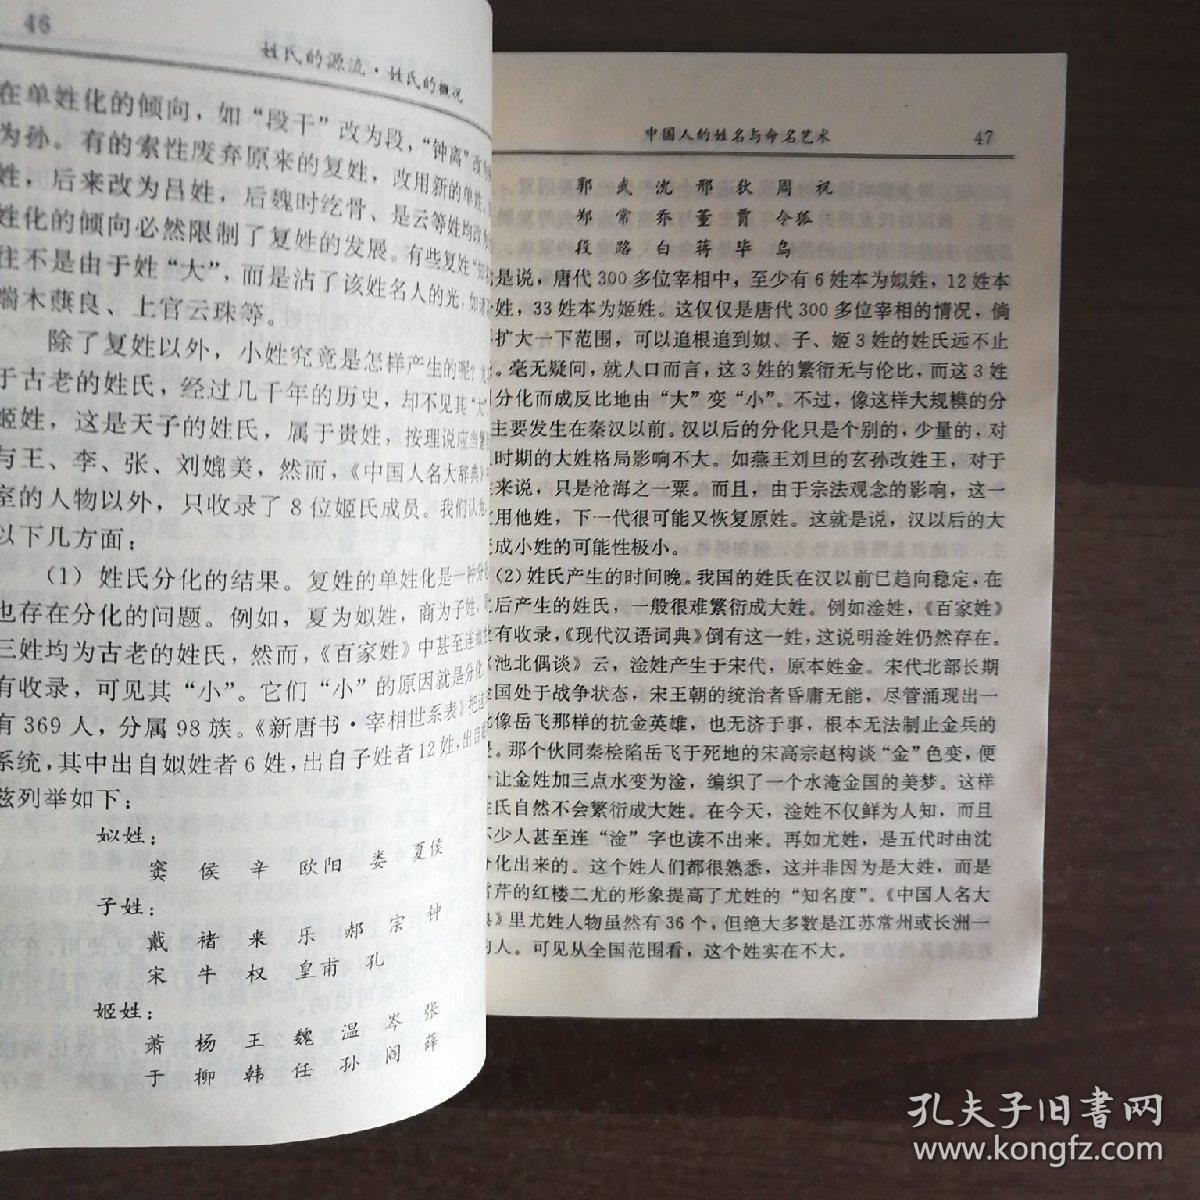 46
姓氏的源流·姓氏的概况
在单姓化的倾向，如“段干”改为段，“钟离”改
为孙。有的索性废弃原来的复姓，改用新的单姓，
姓，后来改为吕姓，后魏时纥骨、是云等姓均改为
姓化的倾向必然限制了复姓的发展。有些复姓
往不是由于姓“大”，而是沾了该姓名人的光，如
端木蕻良、上官云珠等。
除了复姓以外，小姓究竟是怎样产生的呢？
于古老的姓氏，经过几千年的历史，却不见其“大”
姬姓，这是天子的姓氏，属于贵姓，按理说应当
与王、李、张、刘媲美，然而，《中国人名大辞典》
室的人物以外，只收录了8位姬氏成员。我们认为
以下几方面：
（1）姓氏分化的结果。复姓的单姓化是一种分
也存在分化的问题。例如，夏为姒姓，商为子姓，
三姓均为古老的姓氏，然而，《百家姓》中甚至连
有收录，可见其“小”。它们“小”的原因就是分化
有369人，分属98族。《新唐书·宰相世系表》把
系统，其中出自姒姓者6姓，出自子姓者12姓，出自
兹列举如下：
姒姓：
窦 侯 辛 欧阳 娄 夏侯
子姓：
戴 褚 来 乐 郝 宗 钟
宋 牛 权 皇甫 孔
姬姓：
萧 杨 王 魏 温 岑 张
于 柳 韩 任 孙 阎 薛
中国人的姓名与命名艺术 47
郭 武 沈 邢 狄 周 祝
郑 常 乔 董 贾 令狐
段 路 白 蒋 毕 乌
是说，唐代300多位宰相中，至少有6姓本为姒姓，12姓本
姓，33姓本为姬姓。这仅仅是唐代300多位宰相的情况，倘
扩大一下范围，可以追根追到姒、子、姬3姓的姓氏远不止
。毫无疑问，就人口而言，这3姓的繁衍无与伦比，而这3姓
分化而成反比地由“大”变“小”。不过，像这样大规模的分
主要发生在秦汉以前。汉以后的分化只是个别的，少量的，对
时期的大姓格局影响不大。如燕王刘旦的玄孙改姓王，对于
来说，只是沧海之一粟。而且，由于宗法观念的影响，这一
用他姓，下一代很可能又恢复原姓。这就是说，汉以后的大
成小姓的可能性极小。
（2）姓氏产生的时间晚。我国的姓氏在汉以前已趋向稳定，在
后产生的姓氏，一般很难繁衍成大姓。例如淦姓，《百家姓》
有收录，《现代汉语词典》倒有这一姓，这说明淦姓仍然存在。
《池北偶谈》云，淦姓产生于宋代，原本姓金。宋代北部长期
国处于战争状态，宋王朝的统治者昏庸无能，尽管涌现出一
像岳飞那样的抗金英雄，也无济于事，根本无法制止金兵的
。那个伙同秦桧陷岳飞于死地的宋高宗赵构谈“金”色变，便
让金姓加三点水变为淦，编织了一个水淹金国的美梦。这样
氏自然不会繁衍成大姓。在今天，淦姓不仅鲜为人知，而且
不少人甚至连“淦”字也读不出来。再如尤姓，是五代时由沈
分化出来的。这个姓人们都很熟悉，这并非因为是大姓，而是
雪芹的红楼二尤的形象提高了尤姓的“知名度”。《中国人名大
典》里尤姓人物虽然有36个，但绝大多数是江苏常州或长洲一
的人。可见从全国范围看，这个姓实在不大。
孔夫子旧书网
www.kongfz.com